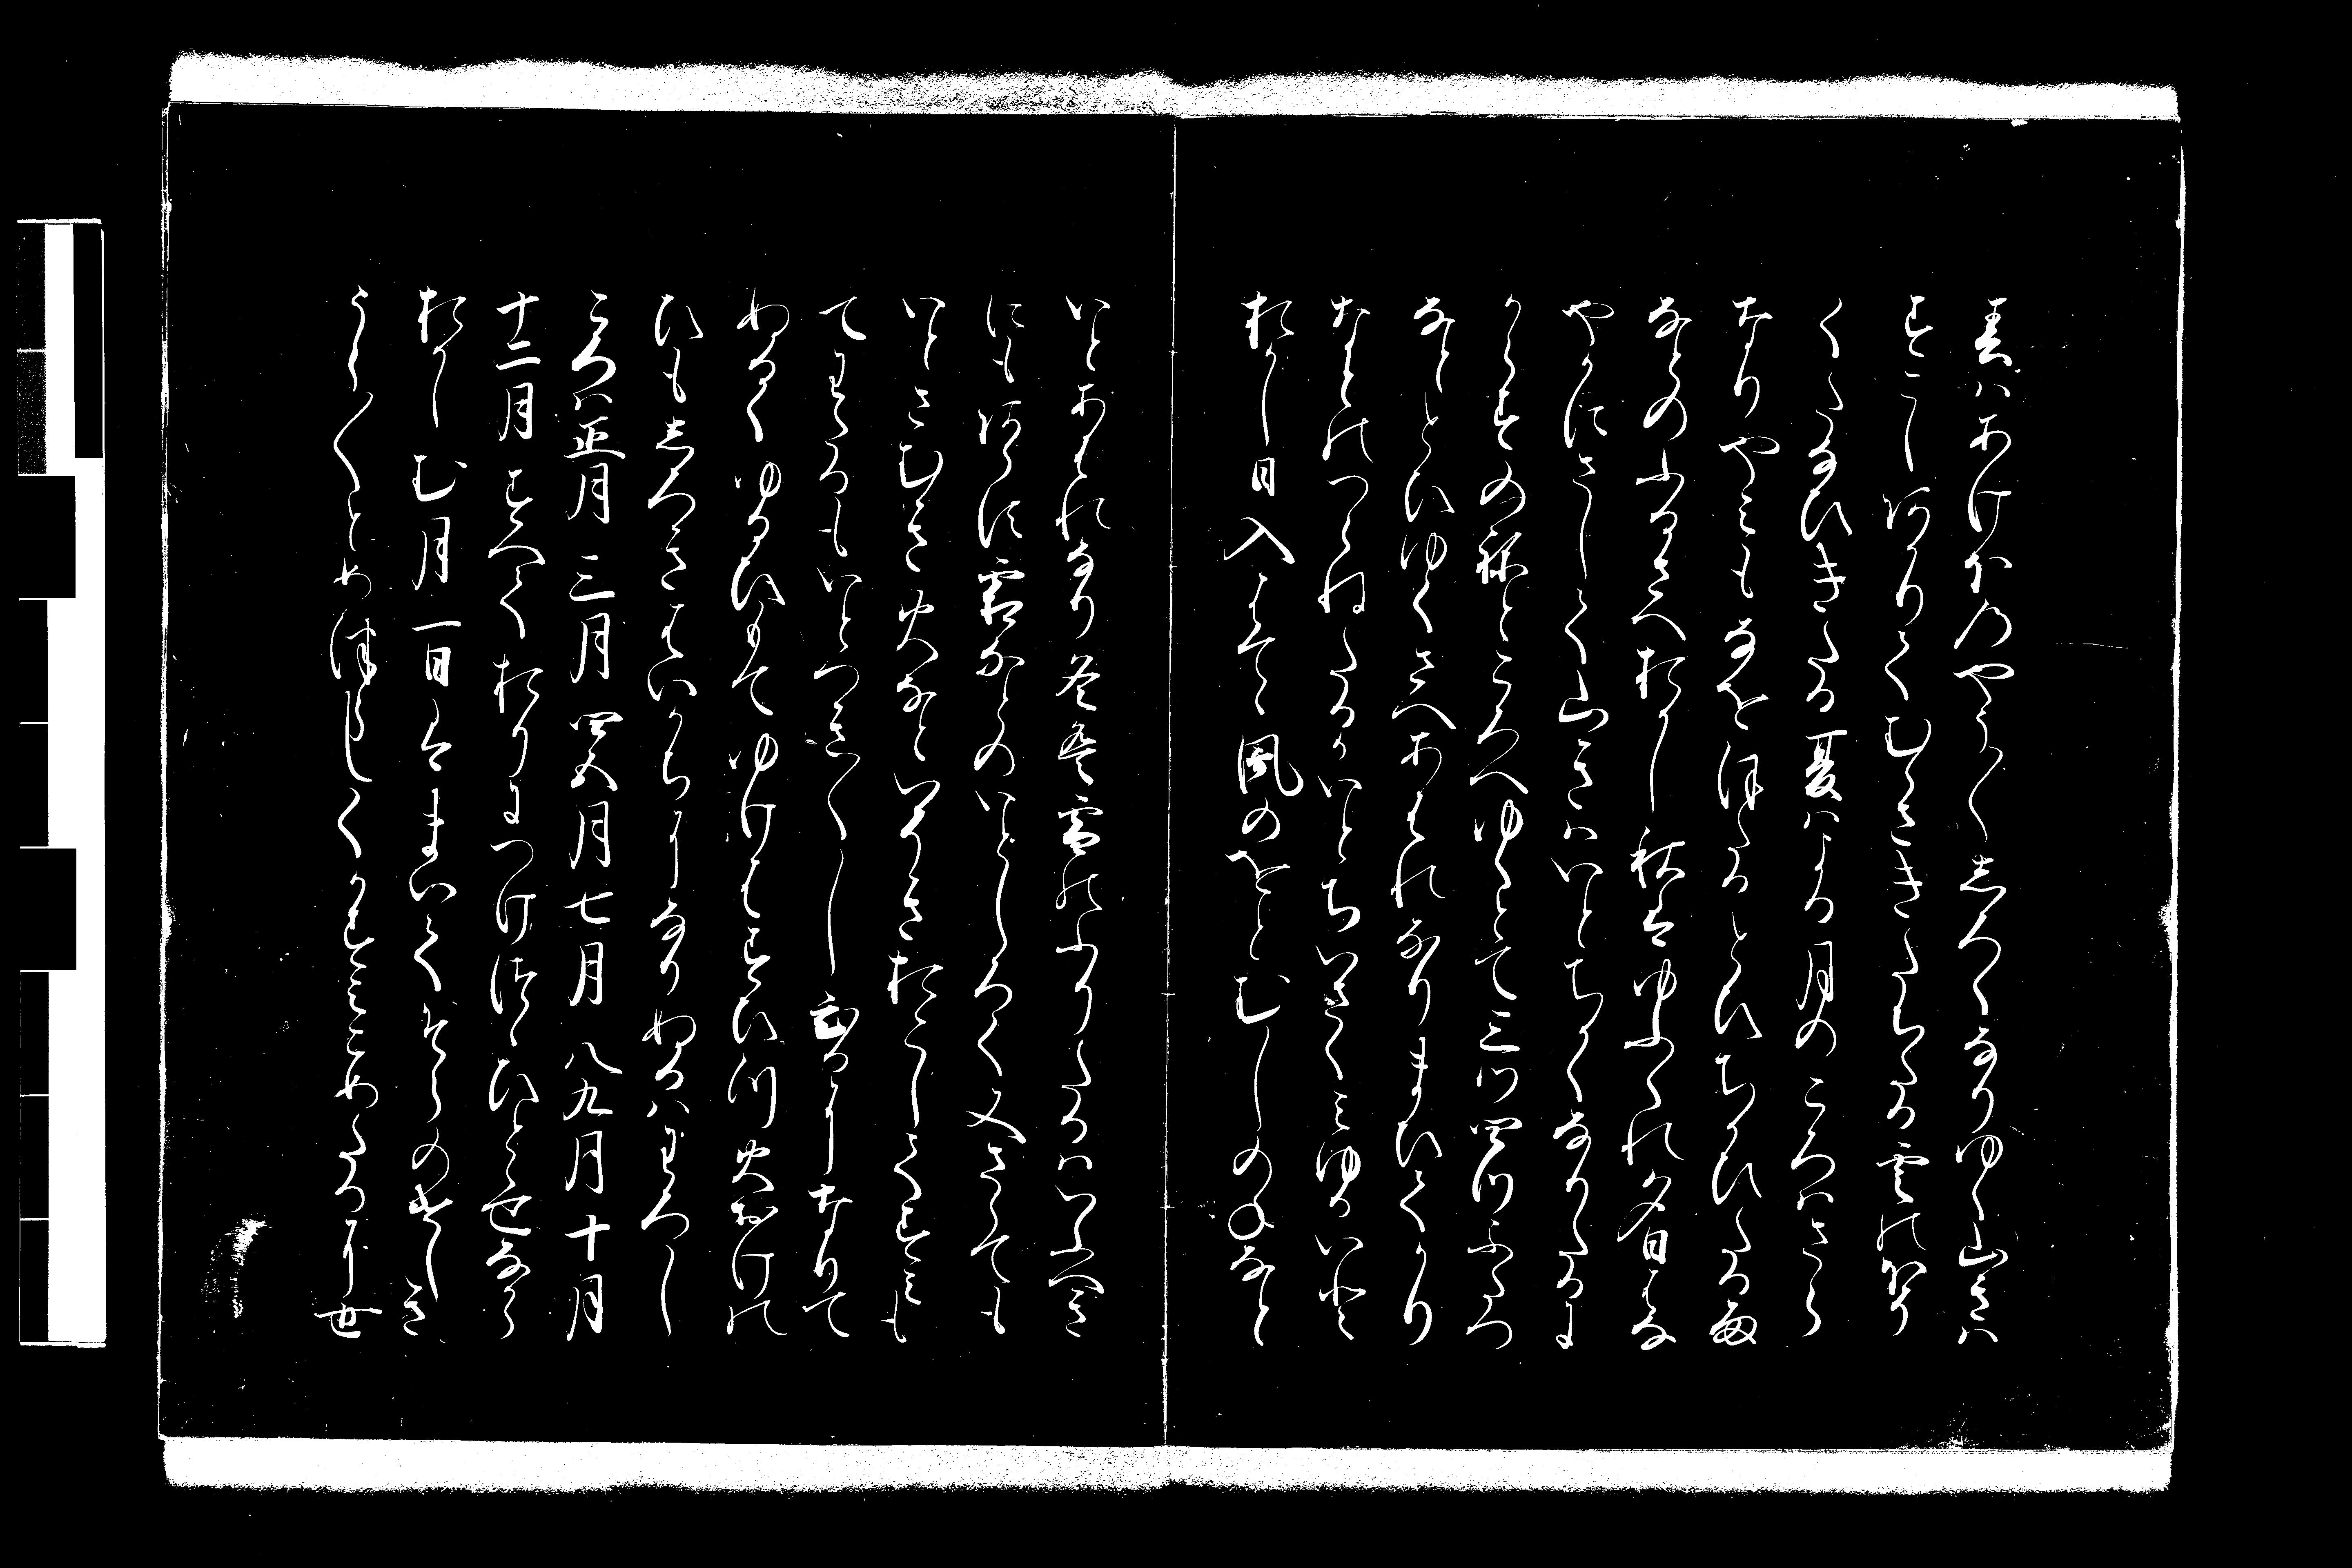 春はあけほのやう〱しろくなりゆく山きは
すこしあかりてむらさきたちたる雲のほそ
くたなひきたる夏はよる月のころはさら
なりやみもなをほたるとひちかひたる雨
なとのふるさへおかし秋は夕くれ夕日はな
やかにさして山きはいとちかくなりたるに
からすのねところへゆくとて三つ四つふたつ
なととひゆくさへあはれなりまひてかり
なとのつらねたるかいとちいさくみゆるいと
おかし日入はてて風のをとむしのねなと
いとあはれなり冬は雪のふりたるはいふへき
にもあらす霜なとのいとしろく又さらても
いとさむきに火なといそきおこしてすみも
てわたるもいとつき〱しひるになりて
ぬるくゆるひもてゆけはすひつ火おけの
ひもしろきはいかちになりぬるはわろし
ころは正月三月四五月七月八九月十月
十二月すへておりにつけつつひととせなから
おかしむ月一日はまいてそらのけしき
うら〱とめつらしくかすみこめたるに世